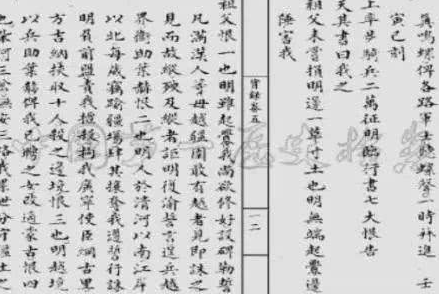 鳴螺俾各路軍士聽螺聲一時並進 壬
寅巳刻
上率步騎兵二萬征明臨行書七大恨告
天其書曰我之
祖父未嘗損明邊一草寸土也明無端起釁邊
陲害我
實錄卷五
一二
祖父恨一也明雖起釁我尚欲修好設碑勒誓
凡滿漢人等毋越疆圉敢有越者見即誅之
見而故縱殃及縱者詎明復渝誓言逞兵越
界衛助葉赫恨二也明人於清河以南江岸
以北每歲竊踰疆場肆其攘奪我遵誓行誅
明負前盟責我擅殺拘我廣寧使臣綱古里
方吉納挾取十人殺之邊境恨三也明越境
以兵助葉赫俾我已聘之女改適蒙古恨四
也柴河三岔撫安三路我累世分守疆土之